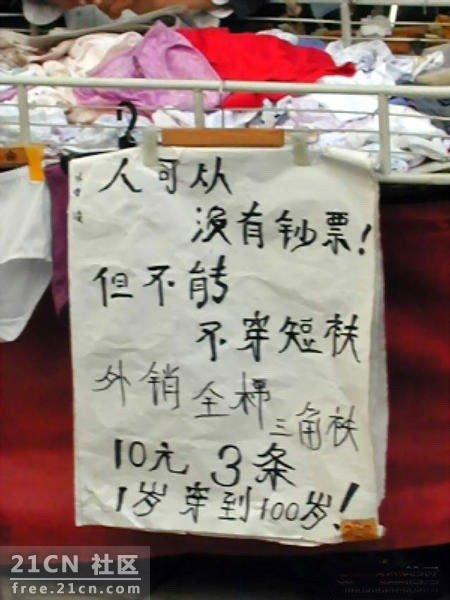 人可从
没有钞票!
但不能
不穿短衭
外销全棉
三角衭
10元 3条
1岁穿到100岁!
21CN 社区
free.21cn.com